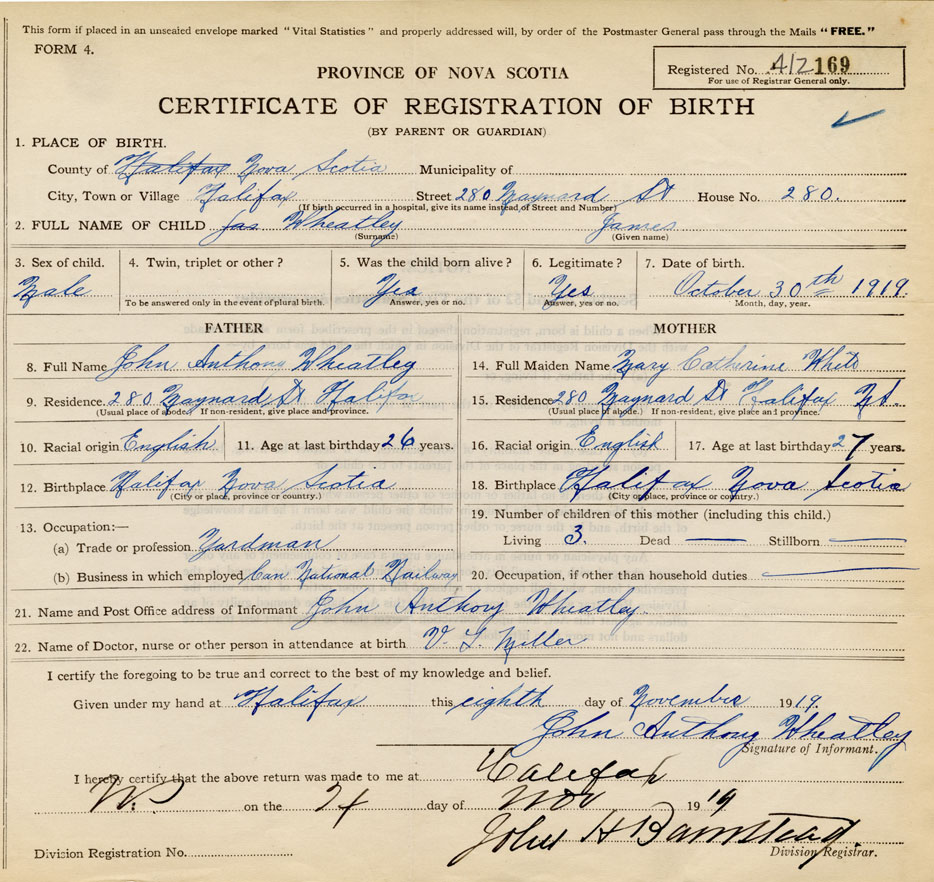 This form if placed in an unsealed envelope marked "Vital Statistics" and properly addressed will, by order of the Postmaster General pass through the Mails "FREE."
FORM 4.
Registered No. 412169
For use of Registrar General only.
PROVINCE OF NOVA SCOTIA
CERTIFICATE OF REGISTRATION OF BIRTH
(BY PARENT OR GUARDIAN)
1. PLACE OF BIRTH.
County of Halifax Nova Scotia Municipality of
City, Town or Village Halifax Street 280 Maynard St House No. 280.
(If birth occurred in a hospital, give its name instead of Street and Number)
2. FULL NAME OF CHILD Jas Wheatley James
(Surname) (Given name)
3. Sex of child. 4. Twin, triplet or other? 5. Was the child born alive? 6. Legitimate? 7. Date of birth.
Male Yes Yes October 30th 1919.
To be answered only in the event of plural birth. Answer, yes or no. Answer, yes or no. Month, day, year.
FATHER MOTHER
8. Full Name John Anthony Wheatley 14. Full Maiden Name Mary Catherine White
9. Residence 280 Maynard St Halifax 15. Residence 280 Maynard St Halifax N.S.
(Usual place of abode) If non-resident, give place and province. (Usual place of abode.) If non-resident, give place and province.
10. Racial origin English 11. Age at last birthday 26 years. 16. Racial origin English 17. Age at last birthday 27 years.
12. Birthplace Halifax Nova Scotia 18. Birthplace Halifax Nova Scotia
(City or place, province or country.) (City or place, province or country.)
13. Occupation:— 19. Number of children of this mother (including this child.)
(a) Trade or profession Yardman Living 3. Dead — Stillborn —
(b) Business in which employed Can National Railway 20. Occupation, if other than household duties —
21. Name and Post Office address of Informant John Anthony Wheatley.
22. Name of Doctor, nurse or other person in attendance at birth V. L. Miller
I certify the foregoing to be true and correct to the best of my knowledge and belief.
Given under my hand at Halifax this eighth day of November 1919.
John Anthony Wheatley
Signature of Informant.
I hereby certify that the above return was made to me at Halifax
N.S. on the day of Nov 1919
John H Barnstead
Division Registrar.
Division Registration No.